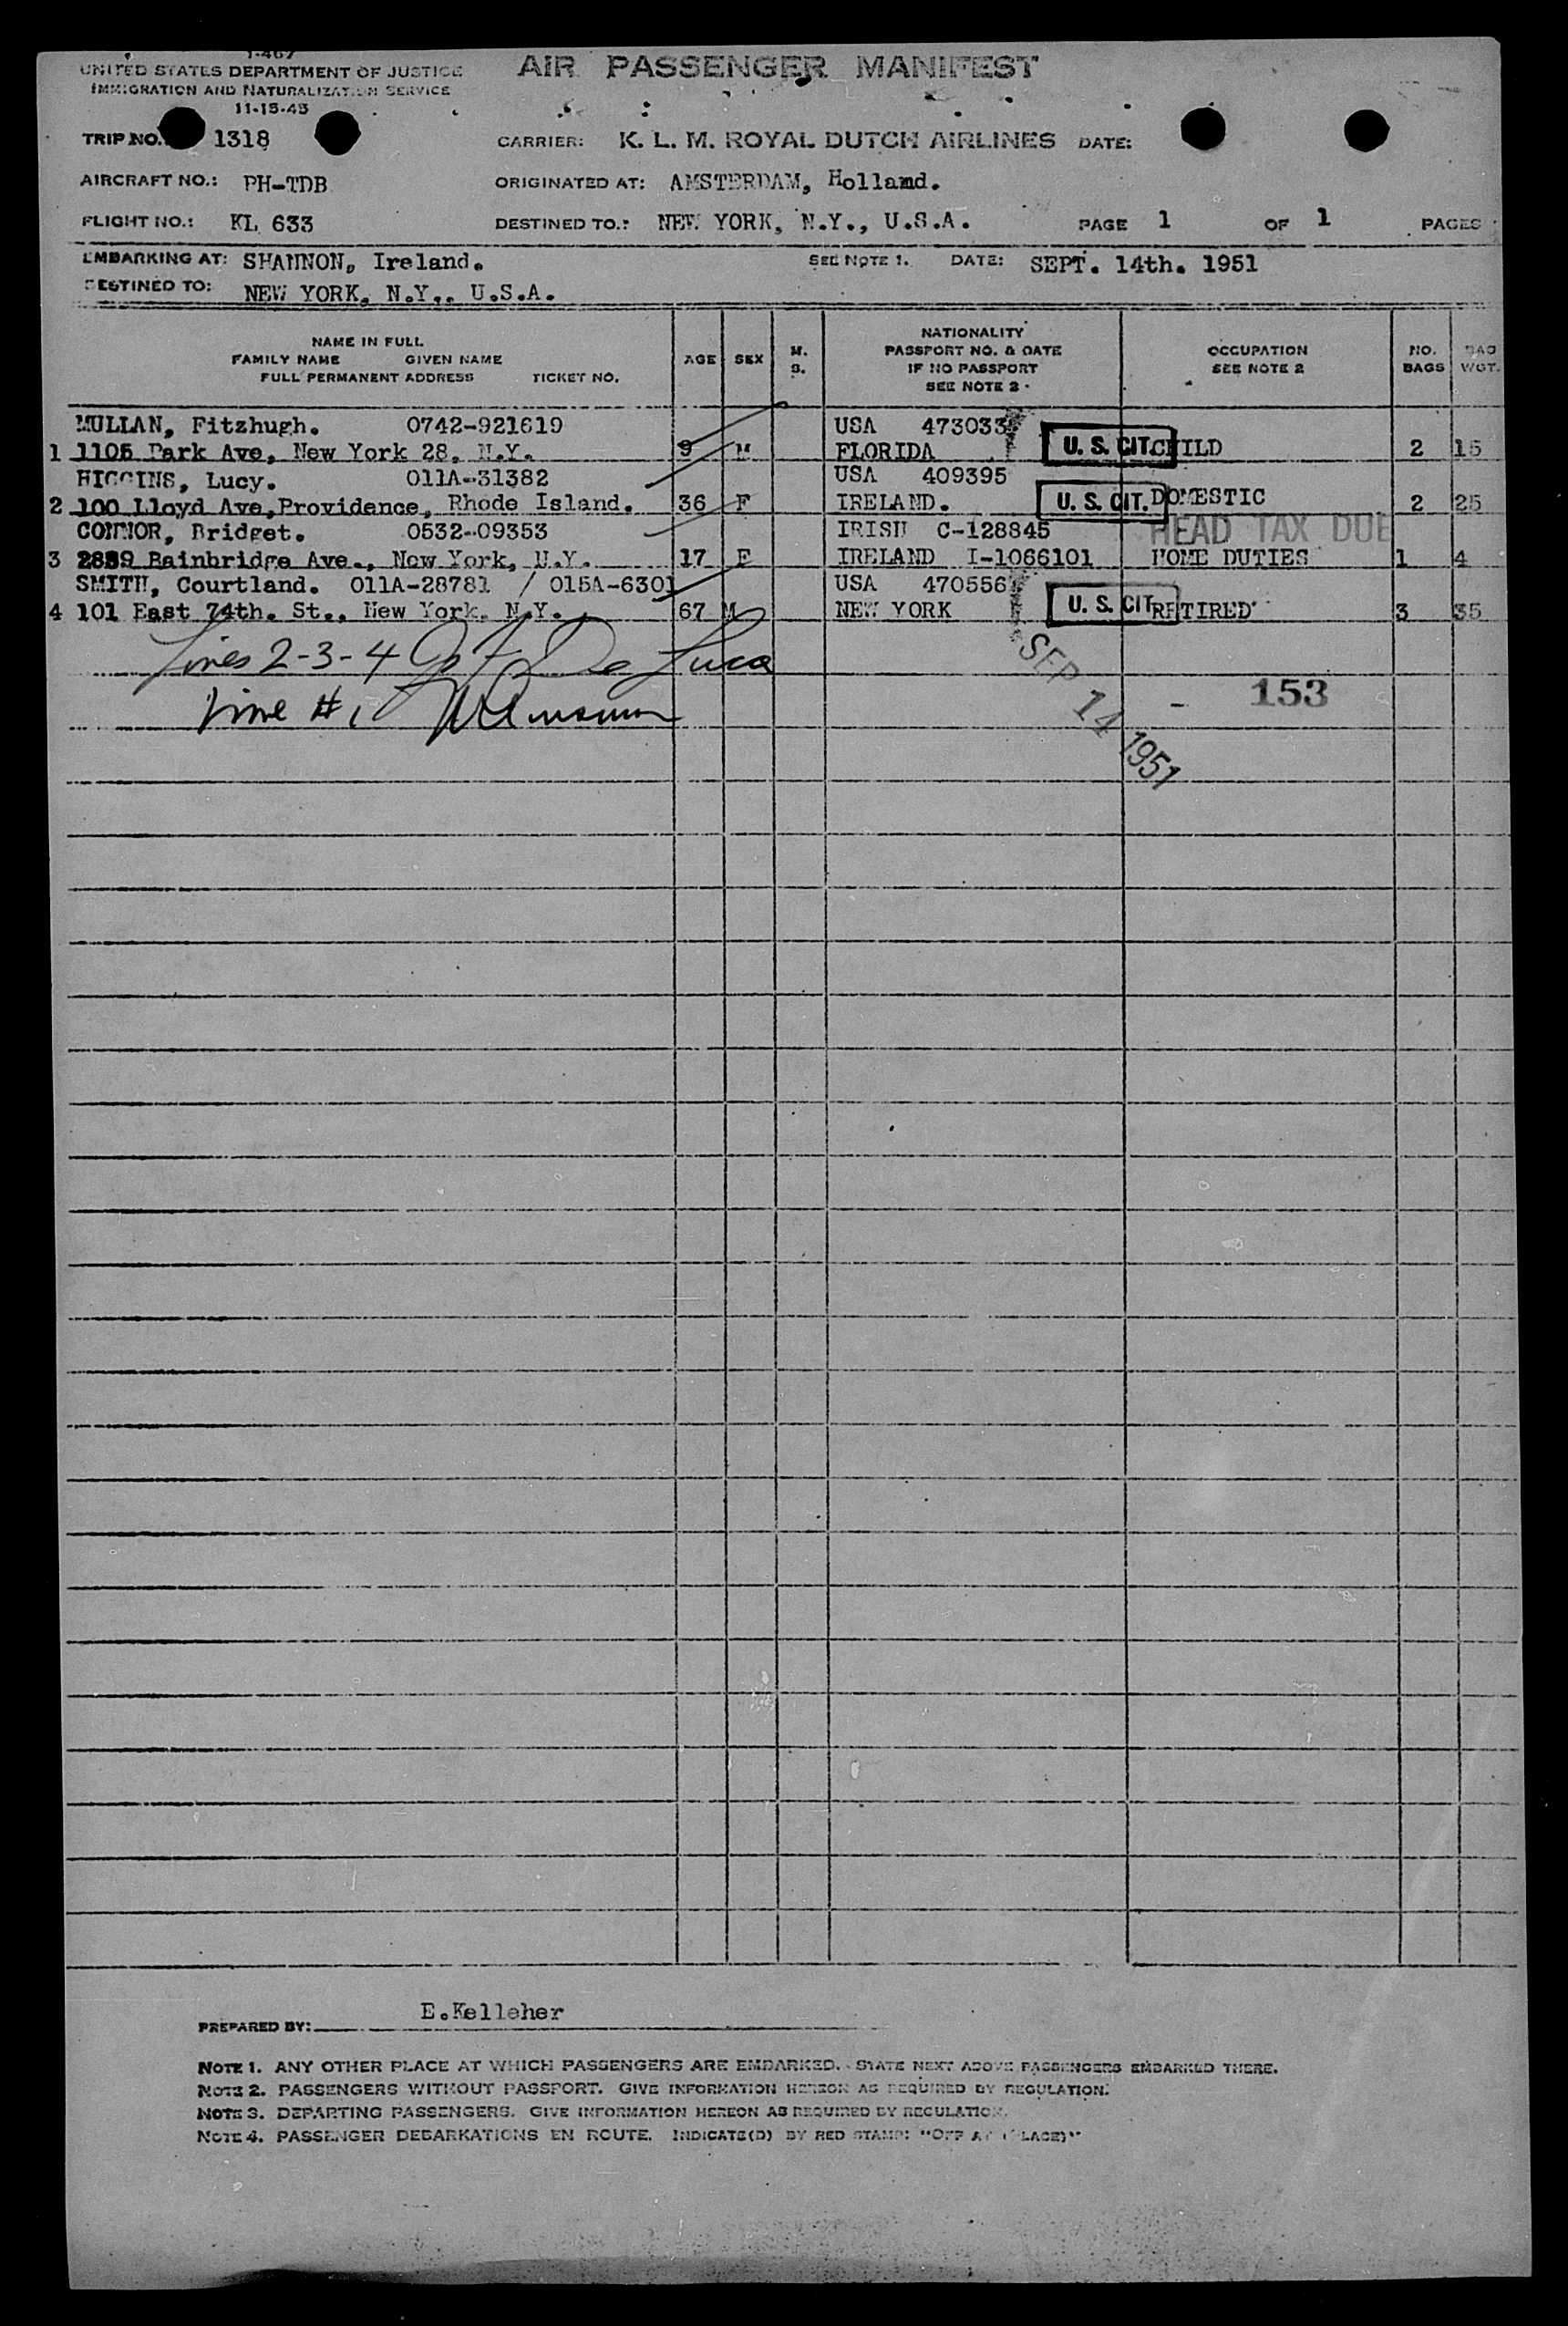 I-467
UNITED STATES DEPARTMENT OF JUSTICE
IMMIGRATION AND NATURALIZATION SERVICE
11-15-45
AIR PASSENGER MANIFEST
TRIP NO. 1318 CARRIER: K. L. M. ROYAL DUTCH AIRLINES DATE:
AIRCRAFT NO.: PH-TDB ORIGINATED AT: AMSTERDAM, Holland.
FLIGHT NO.: KL 633 DESTINED TO.: NEW YORK, N.Y., U.S.A. PAGE 1 OF 1 PAGES
EMBARKING AT: SHANNON, Ireland. SEE NOTE 1. DATE: SEPT. 14th. 1951
DESTINED TO: NEW YORK, N.Y., U.S.A.
NAME IN FULL
FAMILY NAME GIVEN NAME
FULL PERMANENT ADDRESS TICKET NO.
AGE SEX M. S.
NATIONALITY
PASSPORT NO. & DATE
IF NO PASSPORT
SEE NOTE 2
OCCUPATION
SEE NOTE 2
NO. BAGS
BAG WGT.
MULLAN, Fitzhugh. 0742-921619 USA 473033
1 1105 Park Ave, New York 28, N.Y. 9 M FLORIDA U. S. CIT. CHILD 2 15
HIGGINS, Lucy. 011A-31382 USA 409395
2 100 Lloyd Ave, Providence, Rhode Island. 36 F IRELAND. U. S. CIT. DOMESTIC 2 25
CONNOR, Bridget. 0532-09353 IRISH C-128845 HEAD TAX DUE
3 2889 Bainbridge Ave., New York, N.Y. 17 F IRELAND I-1066101 HOME DUTIES 1 4
SMITH, Courtland. 011A-28781 / 015A-6301 USA 470556
4 101 East 74th. St., New York, N.Y. 67 M NEW YORK U. S. CIT. RETIRED 3 35
Lines 2-3-4 De Luca
Line # 1
SEP 14 1951
- 153
PREPARED BY: E.Kelleher
NOTE 1. ANY OTHER PLACE AT WHICH PASSENGERS ARE EMBARKED. STATE NEXT ABOVE PASSENGERS EMBARKED THERE.
NOTE 2. PASSENGERS WITHOUT PASSPORT. GIVE INFORMATION HEREON AS REQUIRED BY REGULATION.
NOTE 3. DEPARTING PASSENGERS. GIVE INFORMATION HEREON AS REQUIRED BY REGULATION.
NOTE 4. PASSENGER DEBARKATIONS EN ROUTE. INDICATE(D) BY RED STAMP: "OFF AT (PLACE)"